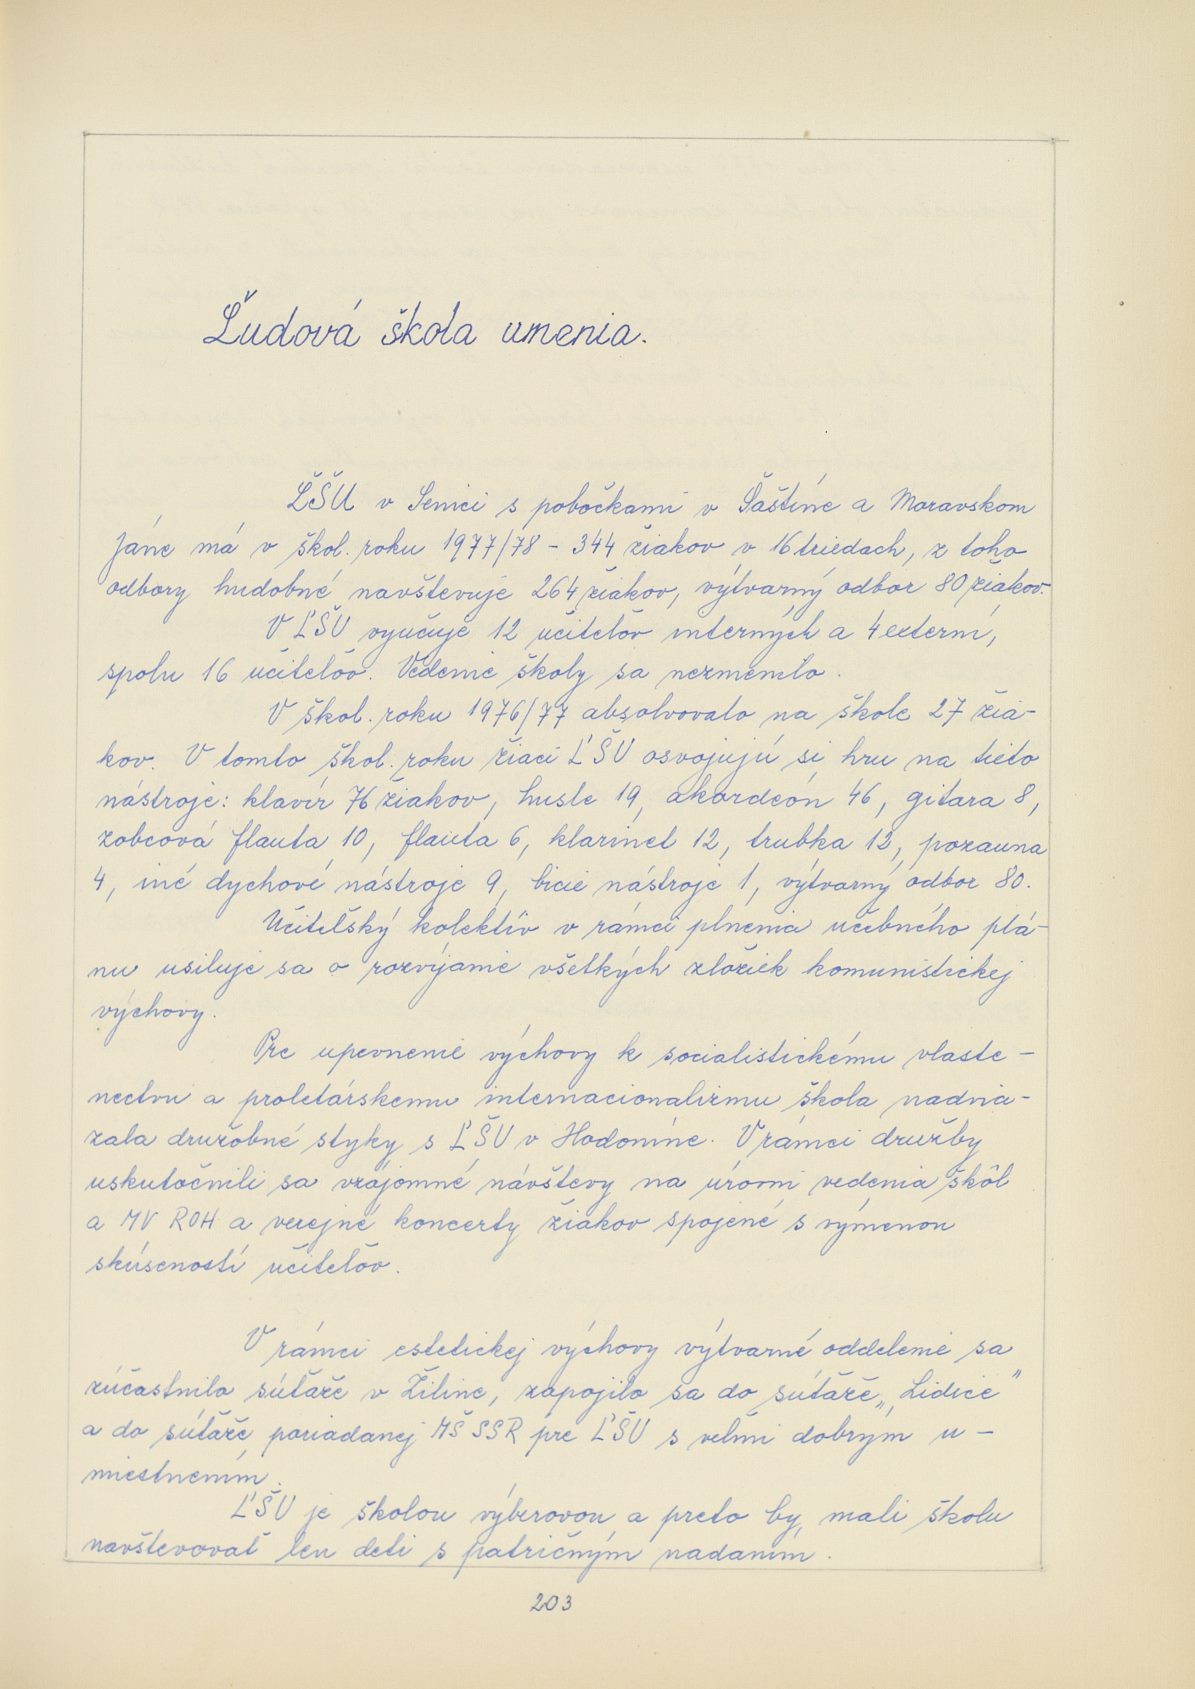 Ľudová škola umenia.
ĽŠU v Senici s pobočkami v Šaštíne a Moravskom
Jáne má v škol. roku 1977/78 - 344 žiakov v 16 triedach, z toho
odbory hudobné navštevuje 264 žiakov, výtvarný odbor 80 žiakov.
V ĽŠU vyučuje 12 učiteľov interných a 4 externí,
spolu 16 učiteľov. Vedenie školy sa nezmenilo.
V škol. roku 1976/77 absolvovalo na škole 27 žia-
kov. V tomto škol. roku žiaci ĽŠU osvojujú si hru na tieto
nástroje: klavír 76 žiakov, husle 19, akordeón 46, gitara 8,
zobcová flauta 10, flauta 6, klarinet 12, trubka 12, pozauna
4, iné dychové nástroje 9, bicie nástroje 1, výtvarný odbor 80.
Učiteľský kolektív v rámci plnenia učebného plá-
nu usiluje sa o rozvíjanie všetkých zložiek komunistickej
výchovy.
Pre upevnenie výchovy k socialistickému vlaste-
nectvu a proletárskemu internacionalizmu škola nadvia-
zala družobné styky s ĽŠU v Hodoníne. V rámci družby
uskutočnili sa vzájomné návštevy na úrovni vedenia škôl
a MV ROH a verejné koncerty žiakov spojené s výmenou
skúseností učiteľov.
V rámci estetickej výchovy výtvarné oddelenie sa
zúčastnilo súťaže v Žiline, zapojilo sa do súťaže „Lidice"
a do súťaže poriadanej MŠ SSR pre ĽŠU s veľmi dobrým u-
miestnením.
ĽŠU je školou výberovou a preto by, mali školu
navštevovať len deti s patričným nadaním.
203